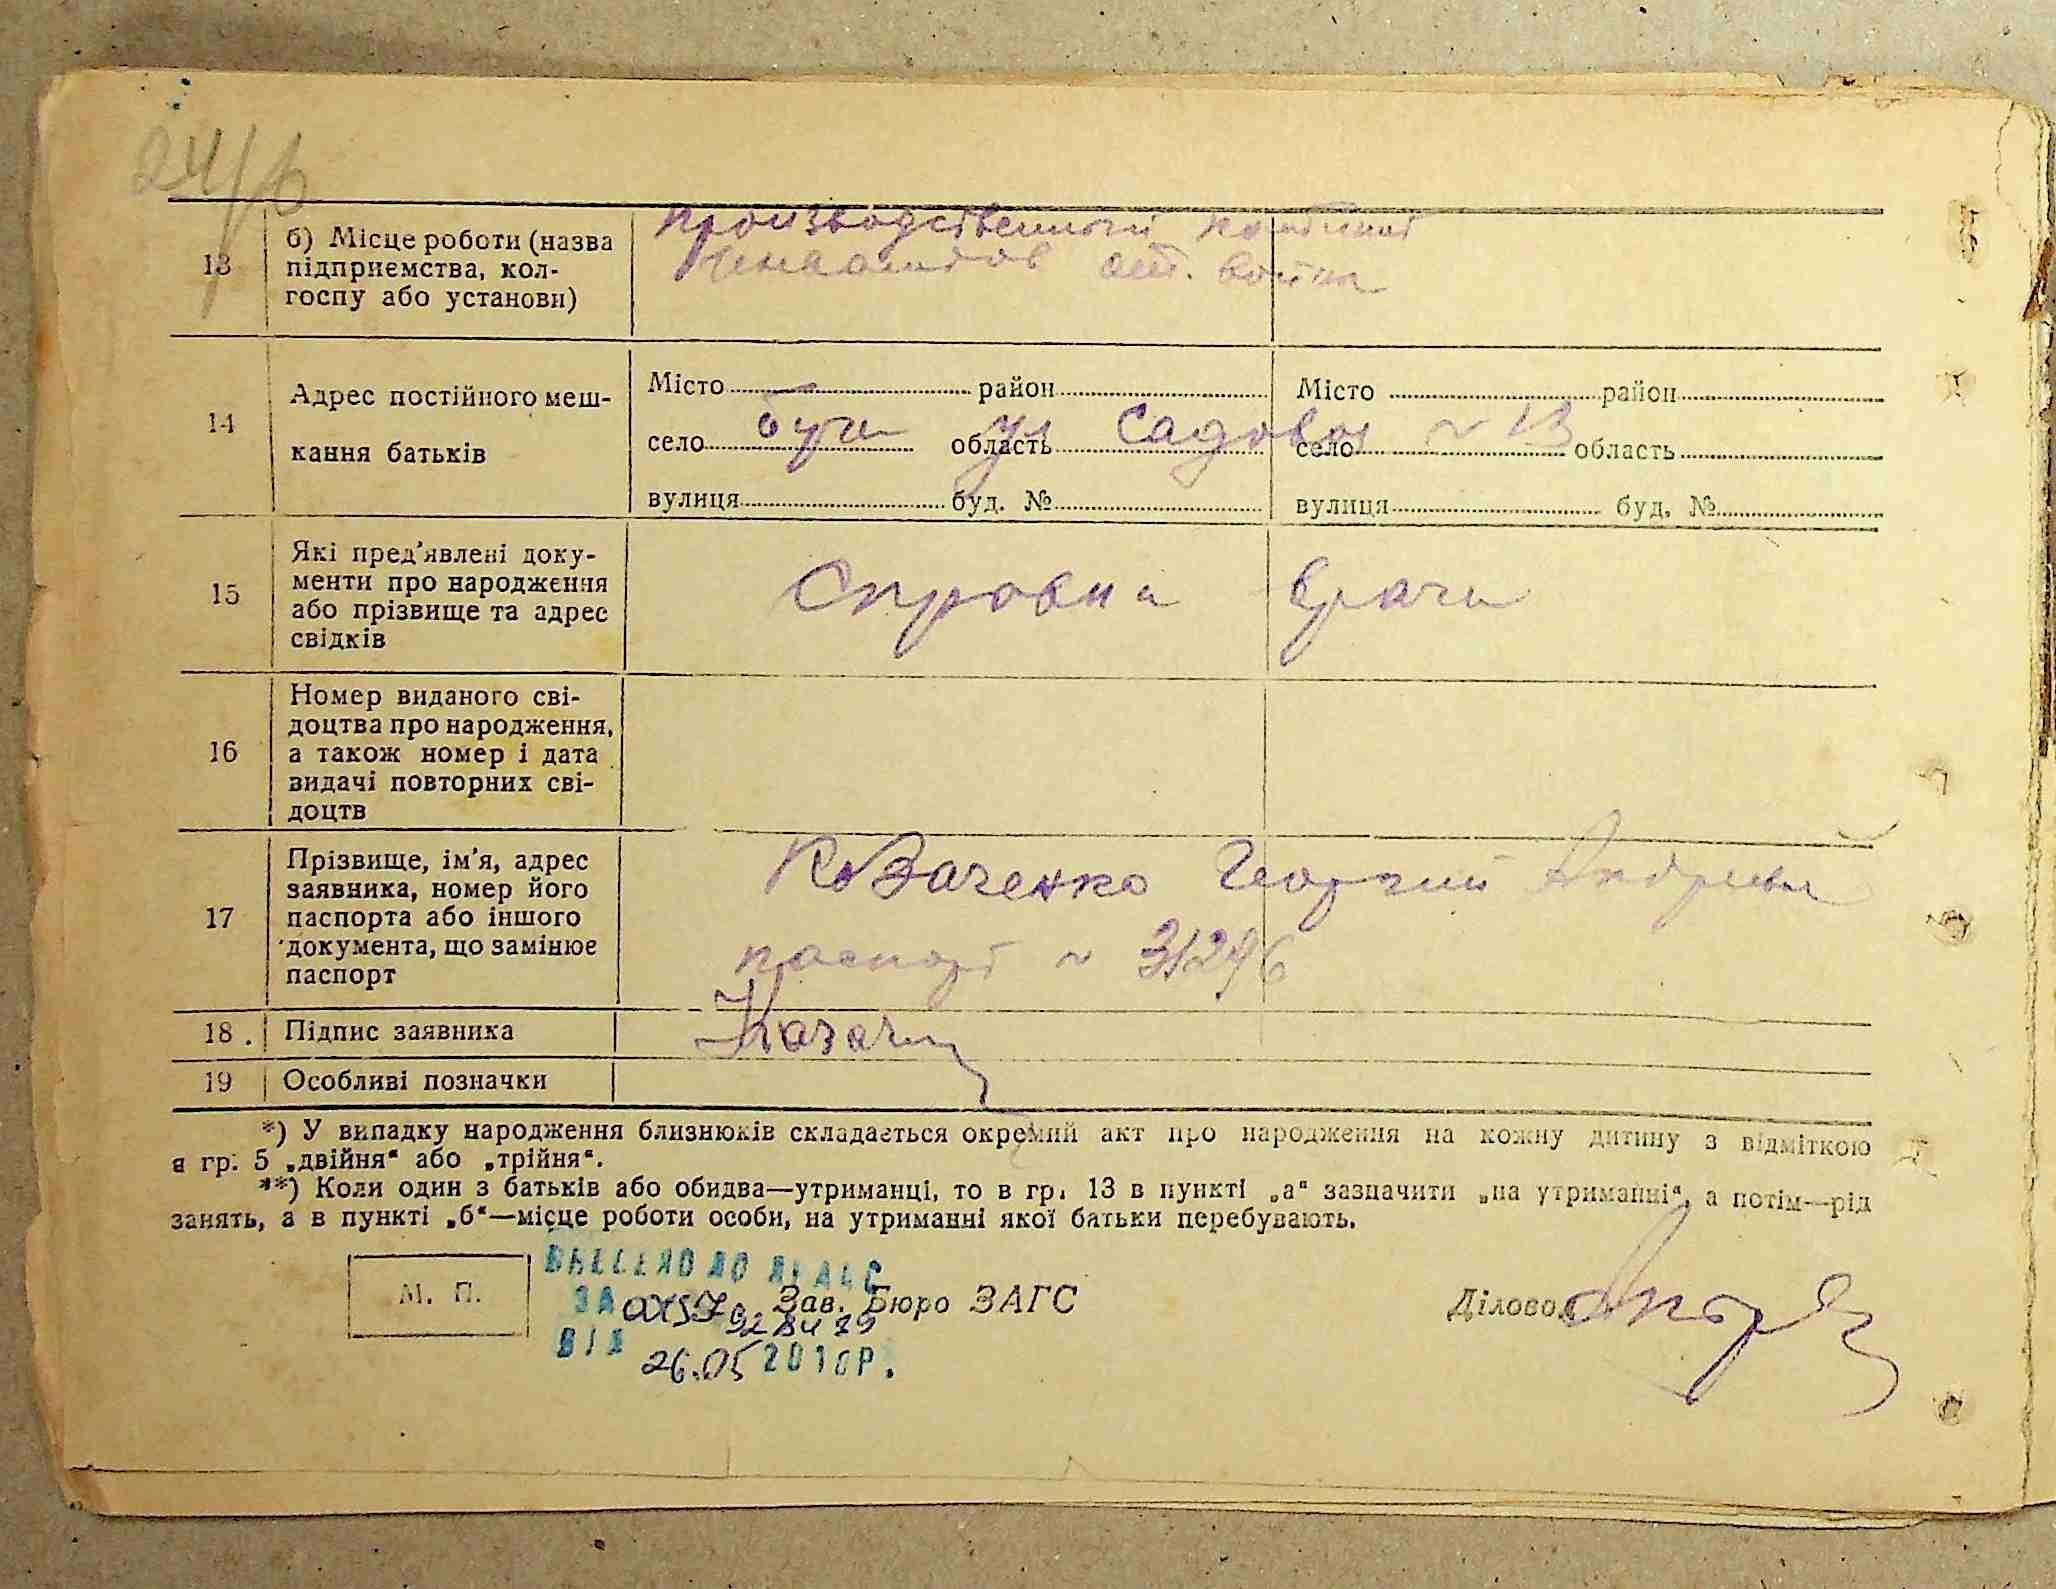 24/б
13
б) Місце роботи (назва
підприємства, кол-
госпу або установи)
производственный комбинат
инвалидов от. войны
14
Адрес постійного меш-
кання батьків
Місто район
село Буча область ул Садовая
вулиця буд. №
Місто район
село № 13 область
вулиця буд. №
15
Які пред'явлені доку-
менти про народження
або прізвище та адрес
свідків
Справка врача
16
Номер виданого сві-
доцтва про народження,
а також номер і дата
видачі повторних сві-
доцтв
17
Прізвище, ім'я, адрес
заявника, номер його
паспорта або іншого
документа, що замінює
паспорт
Козаченко Георгий Андреевич
паспорт № 31296
18.
Підпис заявника
19
Особливі позначки
*) У випадку народження близнюків складається окремий акт про народження на кожну дитину з відміткою
в гр. 5 „двійня“ або „трійня“.
**) Коли один з батьків або обидва—утриманці, то в гр. 13 в пункті „а“ зазначити „на утриманні“, а потім—рід
занять, а в пункті „б“—місце роботи особи, на утриманні якої батьки перебувають.
М. П.
ВНЕСЕНО ДО ДРАЦС
ЗА
ВІД 26.05 2010Р.
Зав. Бюро ЗАГС
Діловод